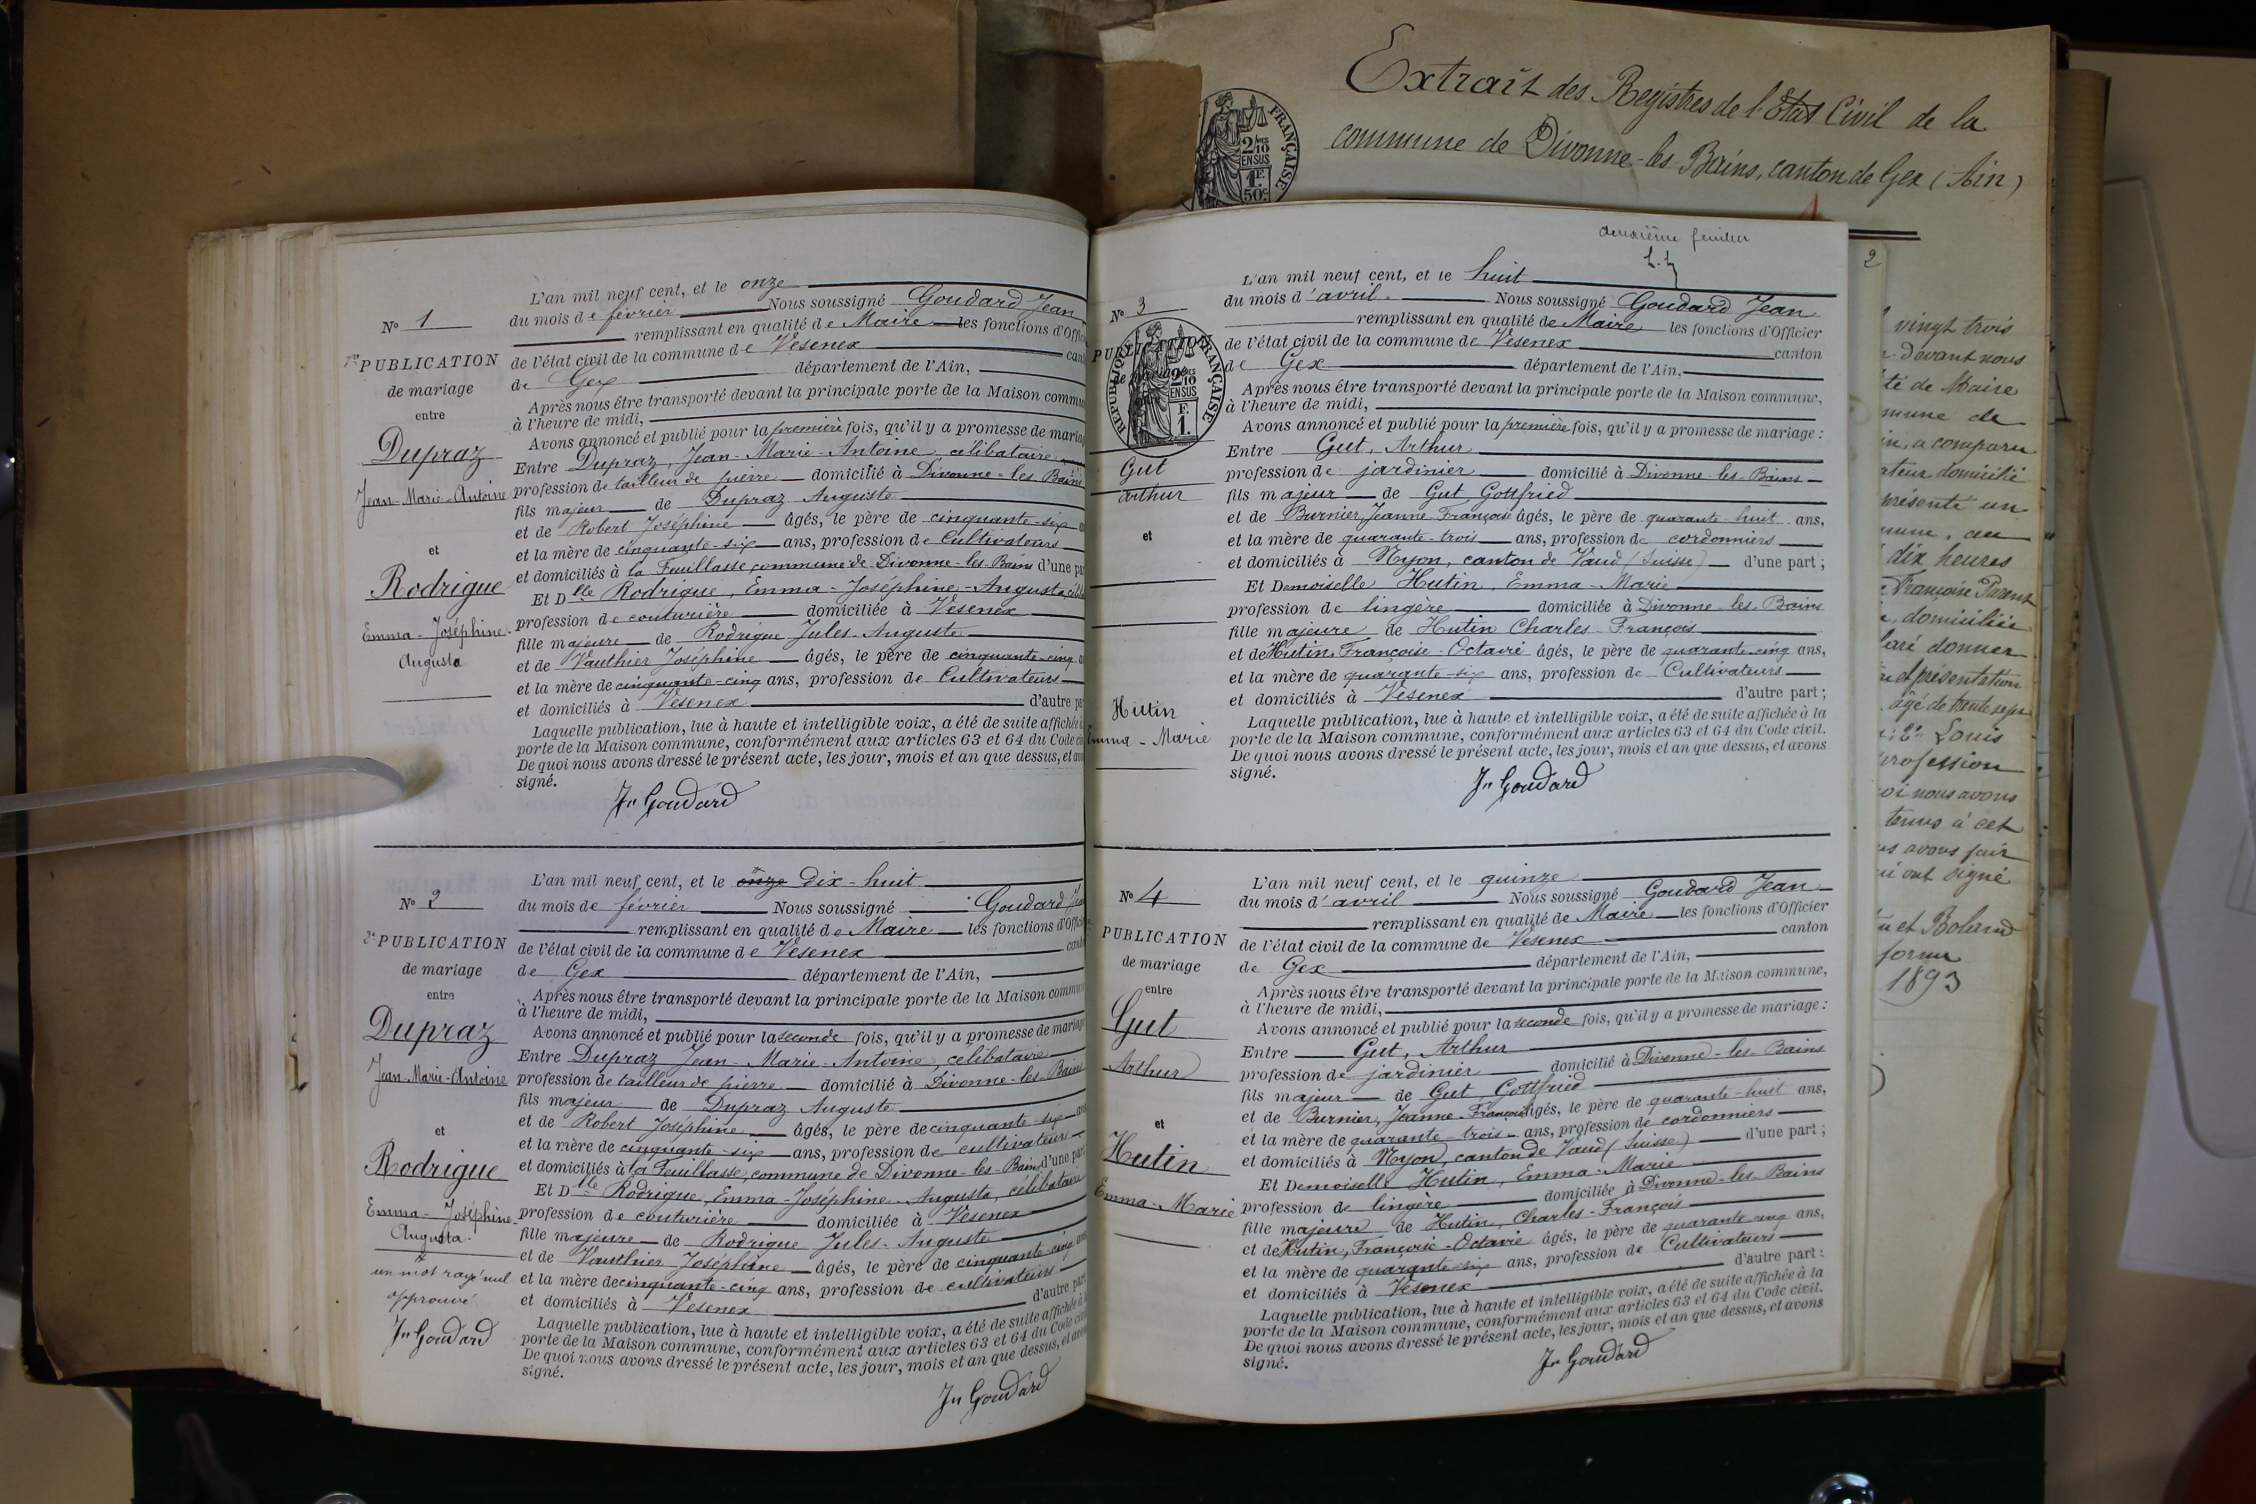 Extrait des Registres de l'Etat Civil de la
commune de Divonne-les Bains, canton de Gex (Ain)
FRANÇAISE
2/10
EN SUS
1F
50c
N° 1
1re PUBLICATION
de mariage
entre
Dupraz
Jean-Marie-Antoine
et
Rodrigue
Emma-Joséphine-
Augusta
L'an mil neuf cent, et le onze
du mois de février Nous soussigné Goudard Jean
remplissant en qualité de Maire les fonctions d'Offic
de l'état civil de la commune de Vesenex cant
de Gex département de l'Ain,
Après nous être transporté devant la principale porte de la Maison commu
à l'heure de midi,
Avons annoncé et publié pour la première fois, qu'il y a promesse de mariag
Entre Dupraz, Jean-Marie-Antoine, célibataire
profession de tailleur de pierre domicilié à Divonne-les-Bains
fils majeur de Dupraz Auguste
et de Robert Joséphine âgés, le père de cinquante-six
et la mère de cinquante-six ans, profession de Cultivateurs
et domiciliés à la Feuillasse, commune de Divonne-les-Bains d'une pa
Et Dlle Rodrigue, Emma-Joséphine-Augusta,
profession de couturière domiciliée à Vesenex
fille majeure de Rodrigue Jules-Auguste
et de Vauthier Joséphine âgés, le père de cinquante-cinq
et la mère de cinquante-cinq ans, profession de Cultivateurs
et domiciliés à Vesenex d'autre pa
Laquelle publication, lue à haute et intelligible voix, a été de suite affichée à
porte de la Maison commune, conformément aux articles 63 et 64 du Code ci
De quoi nous avons dressé le présent acte, les jour, mois et an que dessus, et avo
signé.
Jn Goudard
N° 2
2e PUBLICATION
de mariage
entre
Dupraz
Jean-Marie-Antoine
et
Rodrigue
Emma-Joséphine-
Augusta.
un mot rayé nul
approuvé
Jn Goudard
L'an mil neuf cent, et le onze Dix-huit
du mois de février Nous soussigné Goudard Jea
remplissant en qualité de Maire les fonctions d'Offic
de l'état civil de la commune de Vesenex cant
de Gex département de l'Ain,
Après nous être transporté devant la principale porte de la Maison commun
à l'heure de midi,
Avons annoncé et publié pour la seconde fois, qu'il y a promesse de mariag
Entre Dupraz Jean-Marie-Antoine, célibataire
profession de tailleur de pierre domicilié à Divonne-les-Bains
fils majeur de Dupraz Auguste
et de Robert Joséphine âgés, le père de cinquante-six an
et la mère de cinquante-six ans, profession de cultivateurs
et domiciliés à la Feuillasse, commune de Divonne-les-Bains d'une part
Et Dlle Rodrigue, Emma-Joséphine-Augusta, célibataire
profession de couturière domiciliée à Vesenex
fille majeure de Rodrigue Jules-Auguste
et de Vauthier Joséphine âgés, le père de cinquante-cinq an
et la mère de cinquante-cinq ans, profession de cultivateurs
et domiciliés à Vesenex d'autre part
Laquelle publication, lue à haute et intelligible voix, a été de suite affichée à
porte de la Maison commune, conformément aux articles 63 et 64 du Code civ
De quoi nous avons dressé le présent acte, les jour, mois et an que dessus, et avo
signé.
Jn Goudard
deuxième feuillet
N° 3
PUBLICATION
de mariage
RÉPUBLIQUE FRANÇAISE
2/10
EN SUS
F.
1.
Gut
Arthur
et
Hutin
Emma-Marie
L'an mil neuf cent, et le huit
du mois d'avril. Nous soussigné Goudard Jean
remplissant en qualité de Maire les fonctions d'Officier
de l'état civil de la commune de Vesenex canton
de Gex département de l'Ain.
Après nous être transporté devant la principale porte de la Maison commune,
à l'heure de midi,
Avons annoncé et publié pour la première fois, qu'il y a promesse de mariage :
Entre Gut, Arthur
profession de jardinier domicilié à Divonne-les-Bains
fils majeur de Gut, Gottfried
et de Burnier, Jeanne-Françoise âgés, le père de quarante-huit ans,
et la mère de quarante-trois ans, profession de cordonniers
et domiciliés à Nyon, canton de Vaud (Suisse) d'une part ;
Et Demoiselle Hutin, Emma-Marie
profession de lingère domiciliée à Divonne-les-Bains
fille majeure de Hutin Charles-François
et de Hutin, Françoise-Octavie âgés, le père de quarante-cinq ans,
et la mère de quarante-six ans, profession de Cultivateurs
et domiciliés à Vesenex d'autre part ;
Laquelle publication, lue à haute et intelligible voix, a été de suite affichée à la
porte de la Maison commune, conformément aux articles 63 et 64 du Code civil.
De quoi nous avons dressé le présent acte, les jour, mois et an que dessus, et avons
signé.
Jn Goudard
N° 4
PUBLICATION
de mariage
entre
Gut
Arthur
et
Hutin
Emma-Marie
L'an mil neuf cent, et le quinze
du mois d'avril Nous soussigné Goudard Jean
remplissant en qualité de Maire les fonctions d'Officier
de l'état civil de la commune de Vesenex canton
de Gex département de l'Ain,
Après nous être transporté devant la principale porte de la Maison commune,
à l'heure de midi,
Avons annoncé et publié pour la seconde fois, qu'il y a promesse de mariage :
Entre Gut, Arthur
profession de jardinier domicilié à Divonne-les-Bains
fils majeur de Gut, Gottfried
et de Burnier, Jeanne-Françoise âgés, le père de quarante-huit ans,
et la mère de quarante-trois ans, profession de cordonniers
et domiciliés à Nyon, canton de Vaud (Suisse) d'une part ;
Et Demoiselle Hutin, Emma-Marie
profession de lingère domiciliée à Divonne-les-Bains
fille majeure de Hutin, Charles-François
et de Hutin, Françoise-Octavie âgés, le père de quarante-cinq ans,
et la mère de quarante-six ans, profession de Cultivateurs
et domiciliés à Vesenex d'autre part :
Laquelle publication, lue à haute et intelligible voix, a été de suite affichée à la
porte de la Maison commune, conformément aux articles 63 et 64 du Code civil.
De quoi nous avons dressé le présent acte, les jour, mois et an que dessus, et avons
signé.
Jn Goudard
2
vingt trois
devant nous
té de Maire
mune de
in, a comparu
ateur domicilié
présenté un
dix heures
Françoise Parent
domiciliée
laré donner
et présentation
âgé de trente sept
2° Louis
profession
oi nous avons
tenus à cet
us avons fait
ui ont signé
et Boland
forme
1893